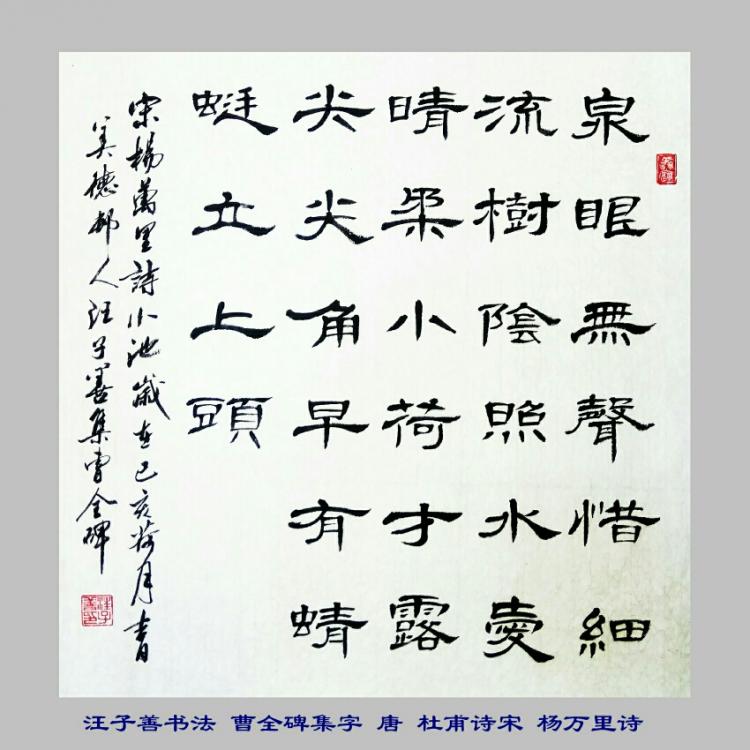 泉眼無聲惜細
流樹陰照水愛
晴柔小荷才露
尖尖角早有蜻
蜓立上頭
宋楊萬里詩小池歲在己亥荷月書
美德邨人汪子善集曹全碑
汪子善书法 曹全碑集字 唐 杜甫诗宋 杨万里诗